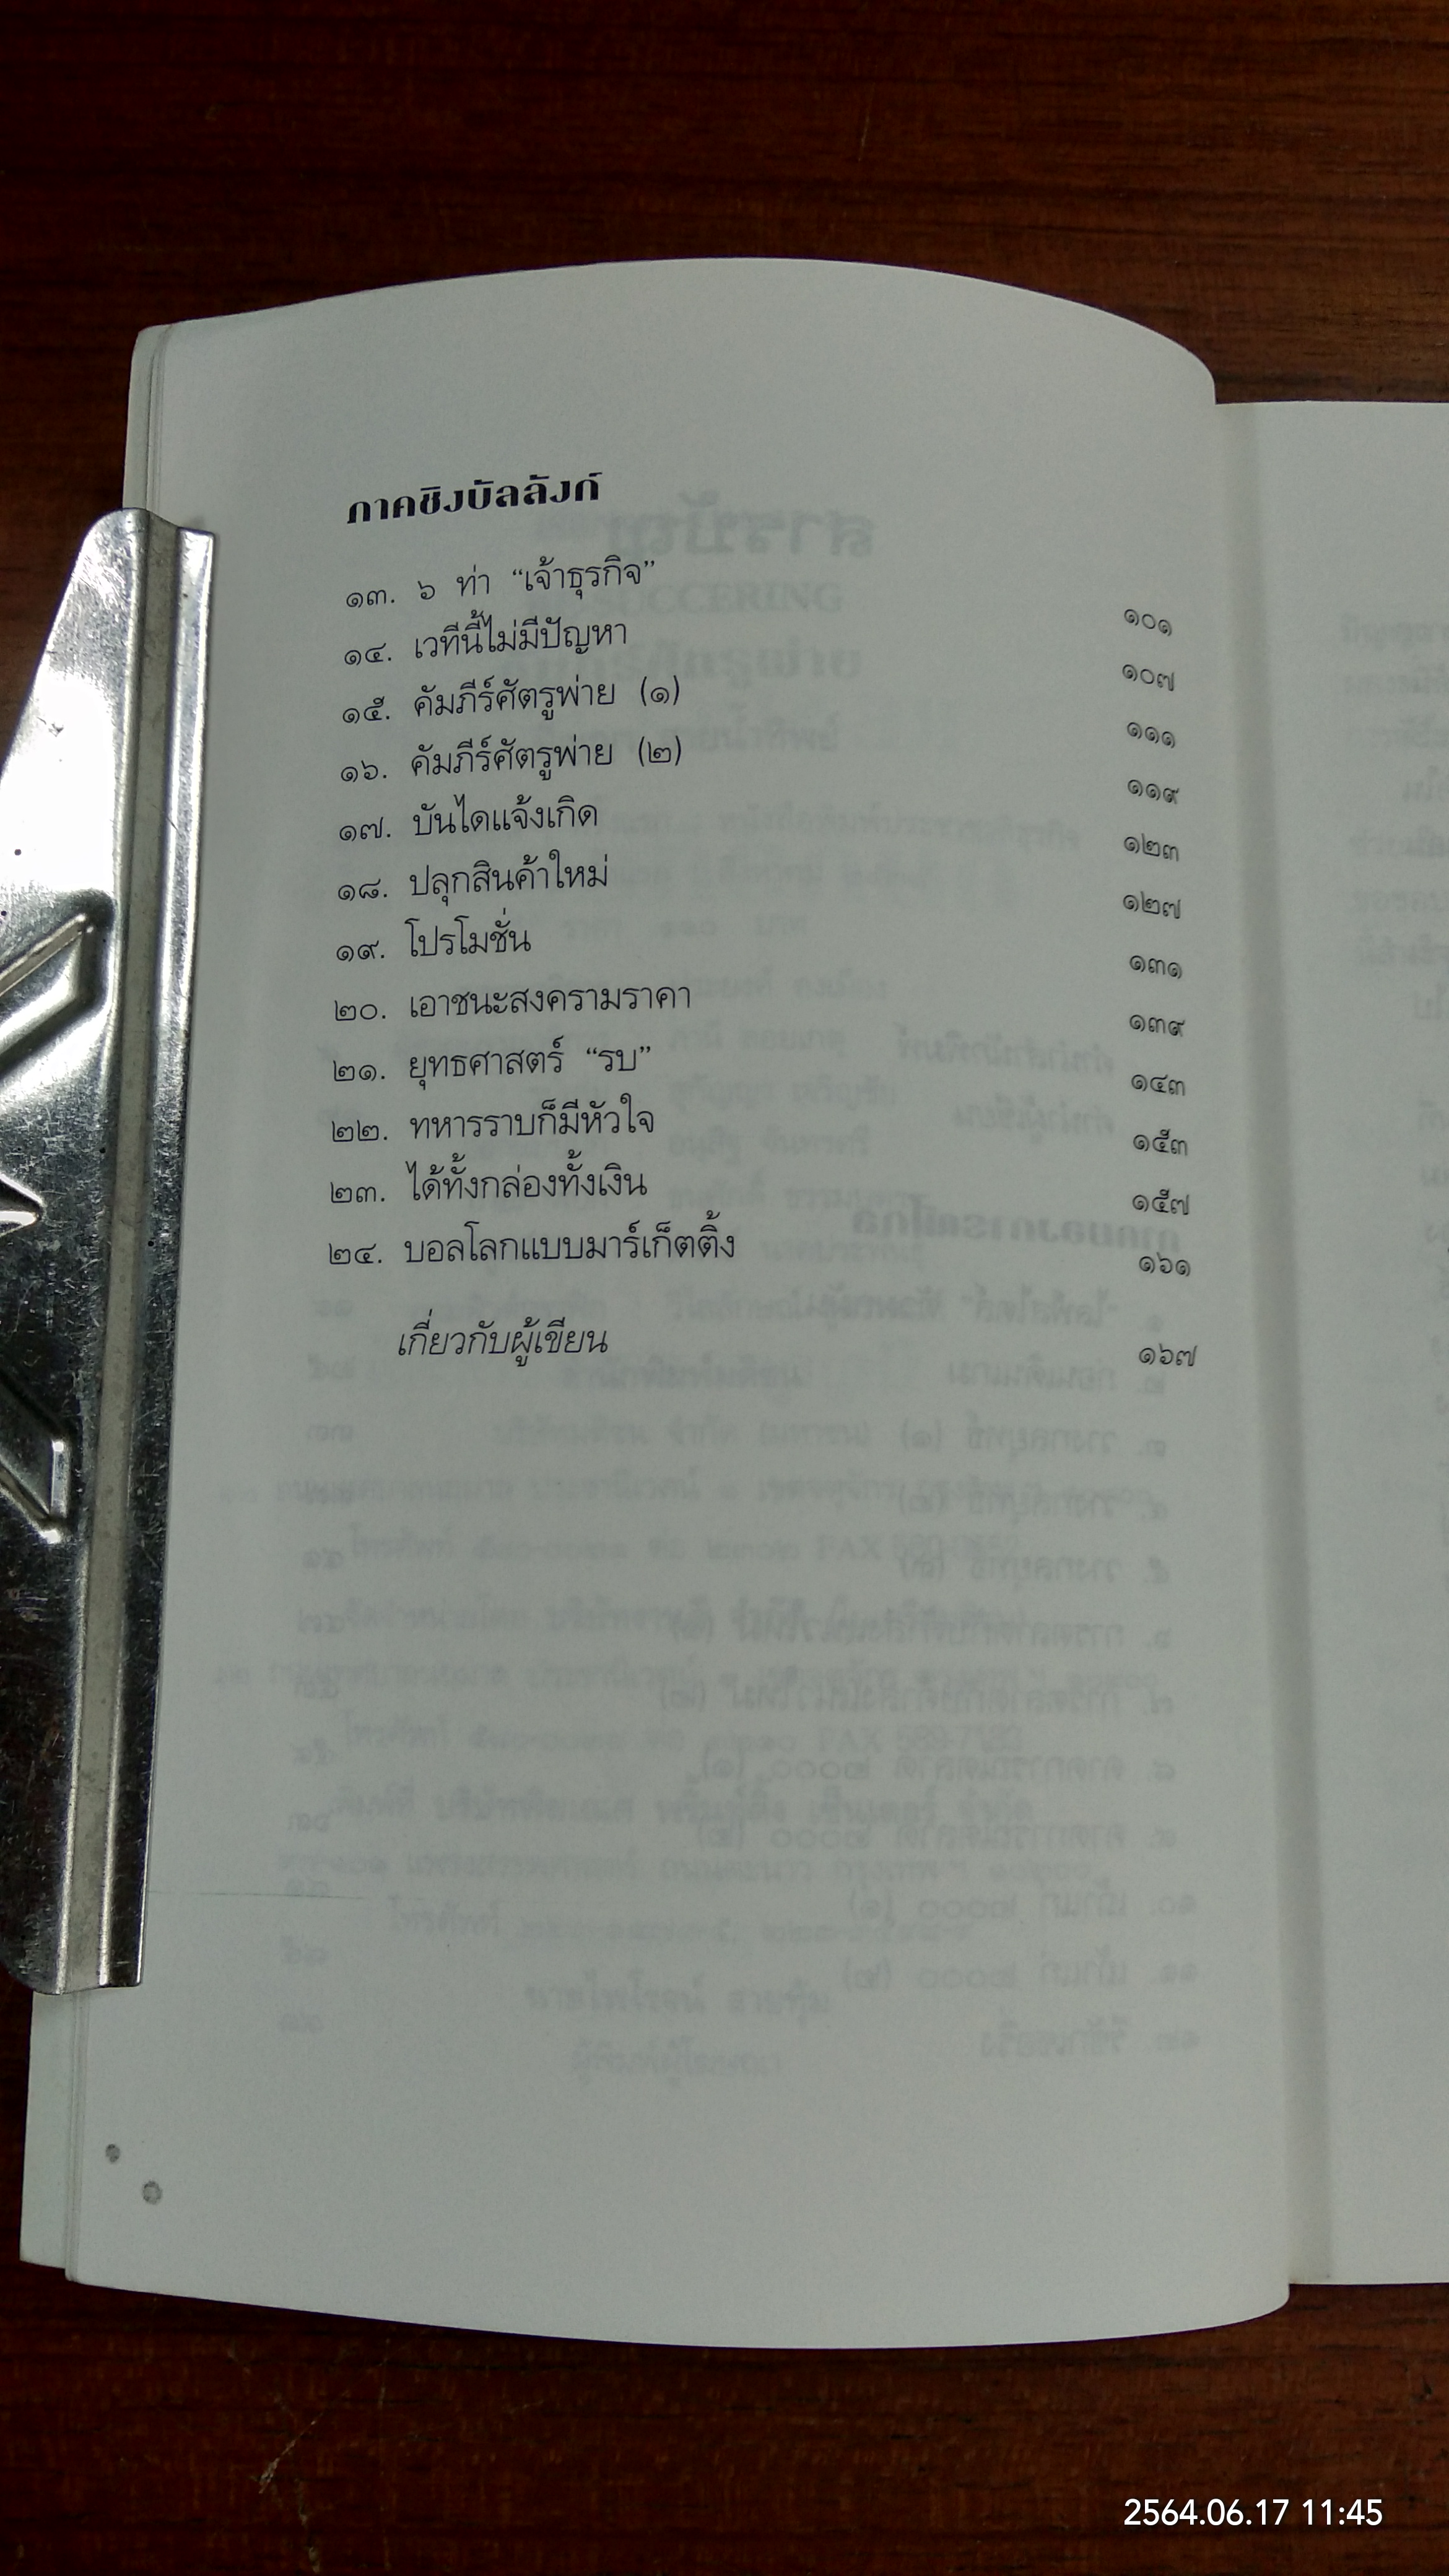 ภาคชิงบัลลังก์
๑๓. ๖ ท่า “เจ้าธุรกิจ” ๑๐๑
๑๔. เวทีนี้ไม่มีปัญหา ๑๐๗
๑๕. คัมภีร์ศัตรูพ่าย (๑) ๑๑๑
๑๖. คัมภีร์ศัตรูพ่าย (๒) ๑๑๙
๑๗. บันไดแจ้งเกิด ๑๒๓
๑๘. ปลุกสินค้าใหม่ ๑๒๗
๑๙. โปรโมชั่น ๑๓๑
๒๐. เอาชนะสงครามราคา ๑๓๙
๒๑. ยุทธศาสตร์ “รบ” ๑๔๓
๒๒. ทหารราบก็มีหัวใจ ๑๕๓
๒๓. ได้ทั้งกล่องทั้งเงิน ๑๕๗
๒๔. บอลโลกแบบมาร์เก็ตติ้ง ๑๖๑
เกี่ยวกับผู้เขียน ๑๖๗
2564.06.17 11:45